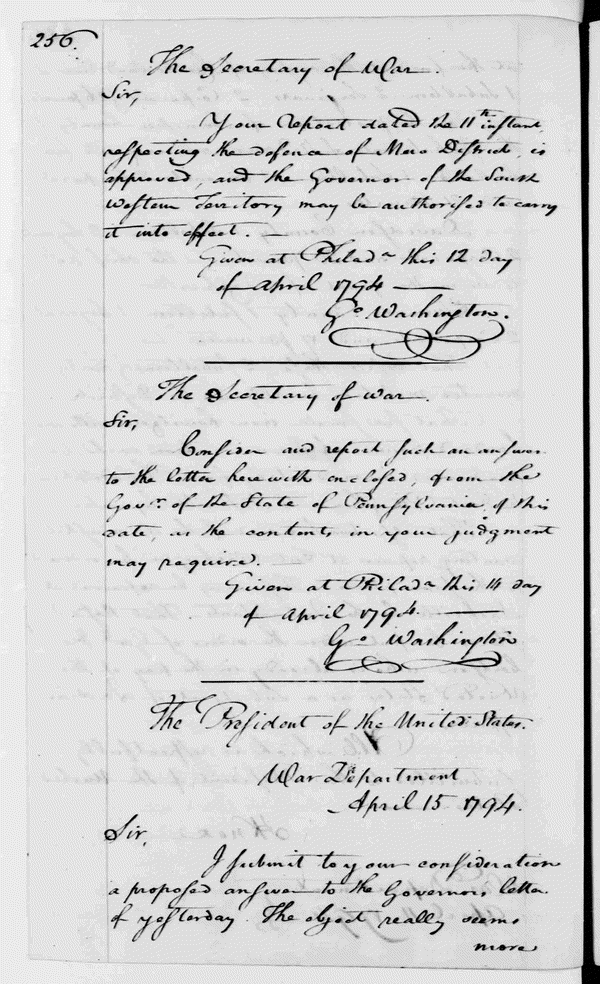 256.
The Secretary of War.
Sir,
Your report dated the 11th instant,
respecting the defence of Mero District, is
approved, and the Governor of the South
Western Territory may be authorised to carry
it into effect. —
Given at Philada this 12 day
of April 1794 —
Go Washington.
The Secretary of war.
Sir,
Consider and report such an answer
to the letter herewith enclosed, from the
Govr. of the State of Pennsylvania, of this
date, as the contents in your judgment
may require.
Given at Philada this 14 day
of April 1794. —
Go Washington
The President of the United States.
War Department
April 15 1794.
Sir,
I submit to your consideration
a proposed answer to the Governors letter
of yesterday. The object really seems
more